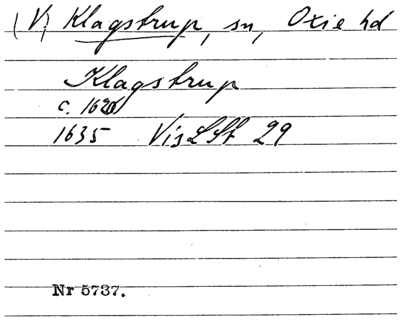 (V) Klagstrup, sn, Oxie hd
Klagstrup
c. 1620
1635 VisLSt 29
Nr 5737.